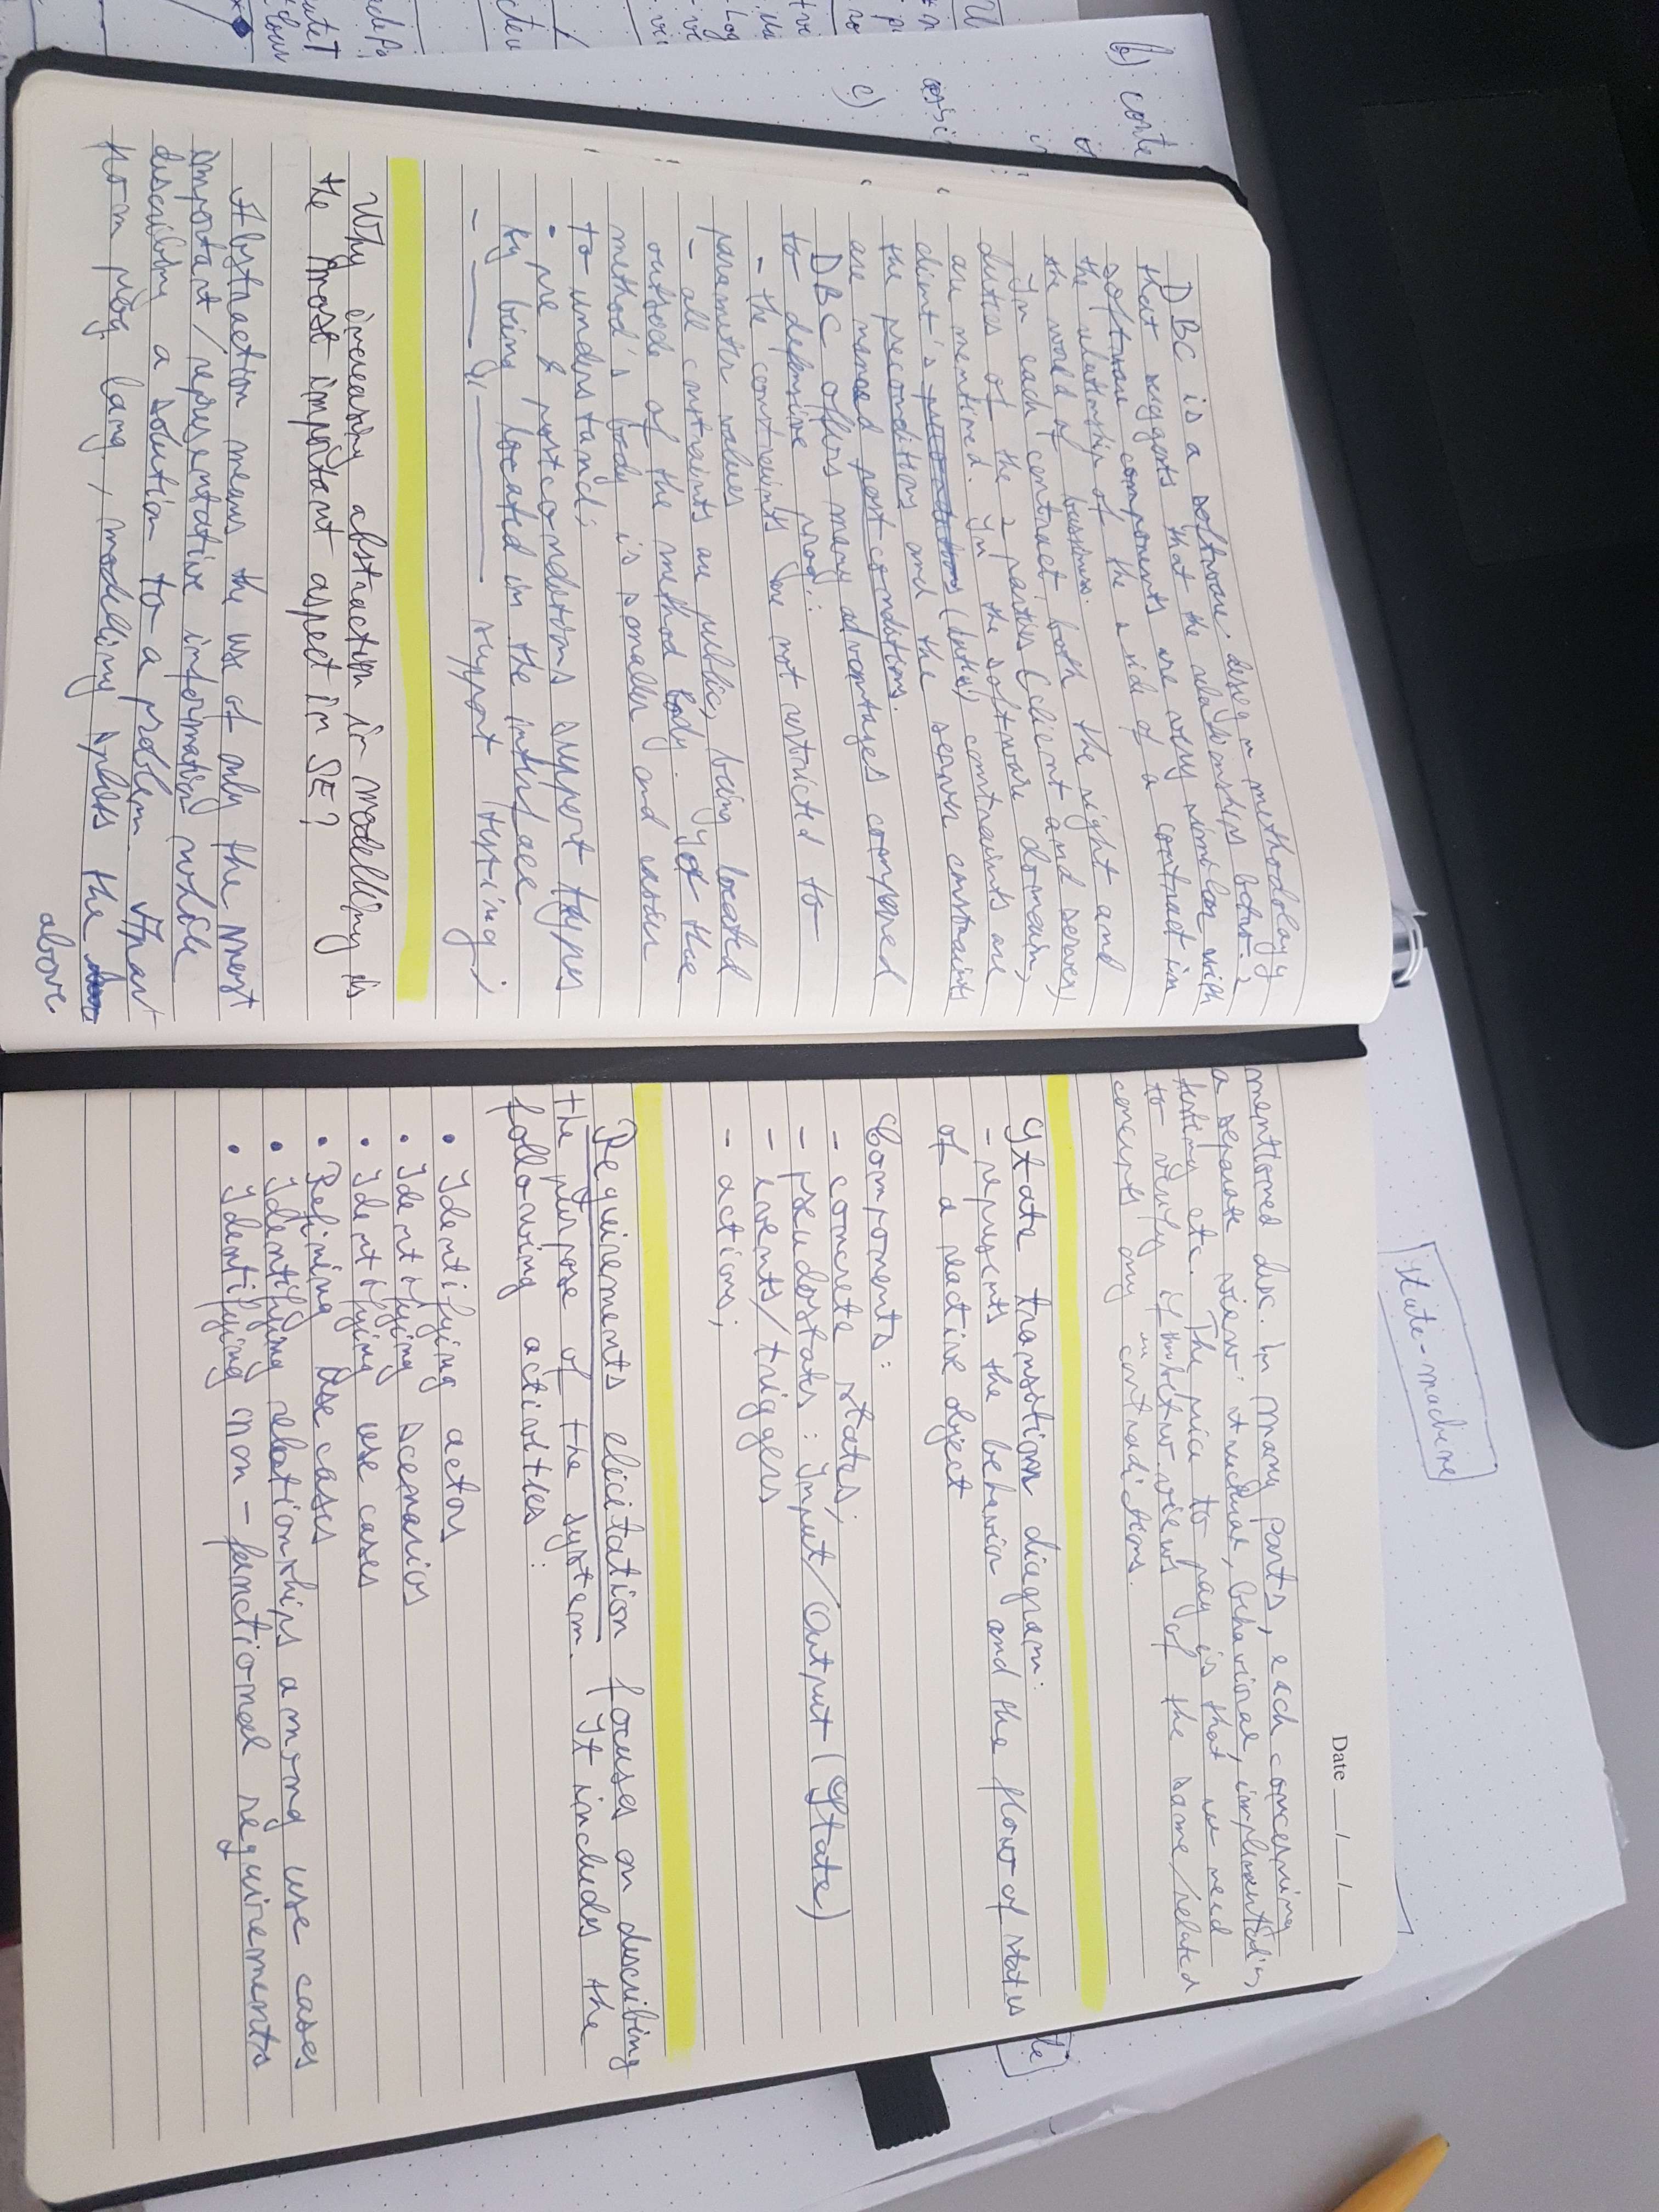 DBC is a software design methodology
that suggests that the relationships betw. 2
software components are very similar with
the relationship of the 2 side of a contract in
the world of business.
In each contract, both the right and
duties of the 2 parties (client and server)
are mentioned. In the software domain,
client's (duties) constraints are
the preconditions and the server constraints
are named postconditions.
DBC offers many advantages compared
to defensive prog.:
- the constraints are not restricted to
parameter values
- all constraints are public, being located
outside of the method body. Yet the
method's body is smaller and easier
to understand;
• pre & postconditions support types
by being located in the interface
- —— 11 —— support testing;
Why increasing abstraction in modelling is
the most important aspect in SE?
Abstraction means the use of only the most
important/representative information while
describing a solution to a problem. Apart
from prog lang, modelling splits the
above
Date __/__/__
mentioned disc. in many parts, each concerning
a separate view: structural, behavioral, implementation,
testing etc. The price to pay is that we need
to verify if betw. views of the same/related
concepts any contradictions.
State transition diagram:
- represents the behavior and the flow of states
of a reactive object
Components:
- concrete states;
- pseudostates: Input/Output (State)
- events/triggers
- actions;
Requirements elicitation focuses on describing
the purpose of the system. It includes the
following activities:
• Identifying actors
• Identifying scenarios
• Identifying use cases
• Refining use cases
• Identifying relationships among use cases
• Identifying non-functional requirements
state-machine
b) conte
c)